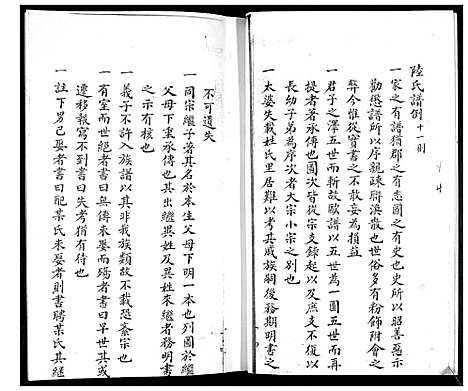 陸氏譜例十一則
一家之有譜猶郡之有志國之有史也史所以昭善惡示
勸懲譜所以序親疎聯渙散也世俗多有粉飾附會之
弊今惟從實書之不敢妄為損益
一君子之澤五世而斬故歐譜以五世為一圖五世而再
提者著承傳也圖次皆從宗支錄起以及長支不復以
長幼子弟為序次者大宗小宗之別也
一太婆失載姓氏里居難以考其戚族嗣後務期明書之
不可遺失
一同宗繼子著其名於本生父母下明一本也列圖於繼
父母下重承傳也其出繼異姓及異姓來繼者務明書
之示有核也
一義子不許入族譜以其非我族類故不載恐紊宗也
一有室而絕者書曰無傳未娶而殤者書曰早世其或
遷移報寫不到書曰失考猶有待也
一註下男已娶者書曰配某氏未娶者則書聘某氏其繼